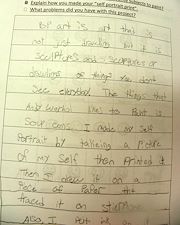 subjects to paint?
Explain how you made your "self portrait prize".
What problems did you have with this project?
POP art is art that is
not just drawing but it is
sculptures and sculptures or
drawings of things you dont
see everyday. The things that
Andy Warhol likes to Paint is
Soup cans. I made my self
Portrait by taking a picture
of my self then Printed it
Then I drew it on a
Peace of Paper
traced it on
Also I Put ink on it